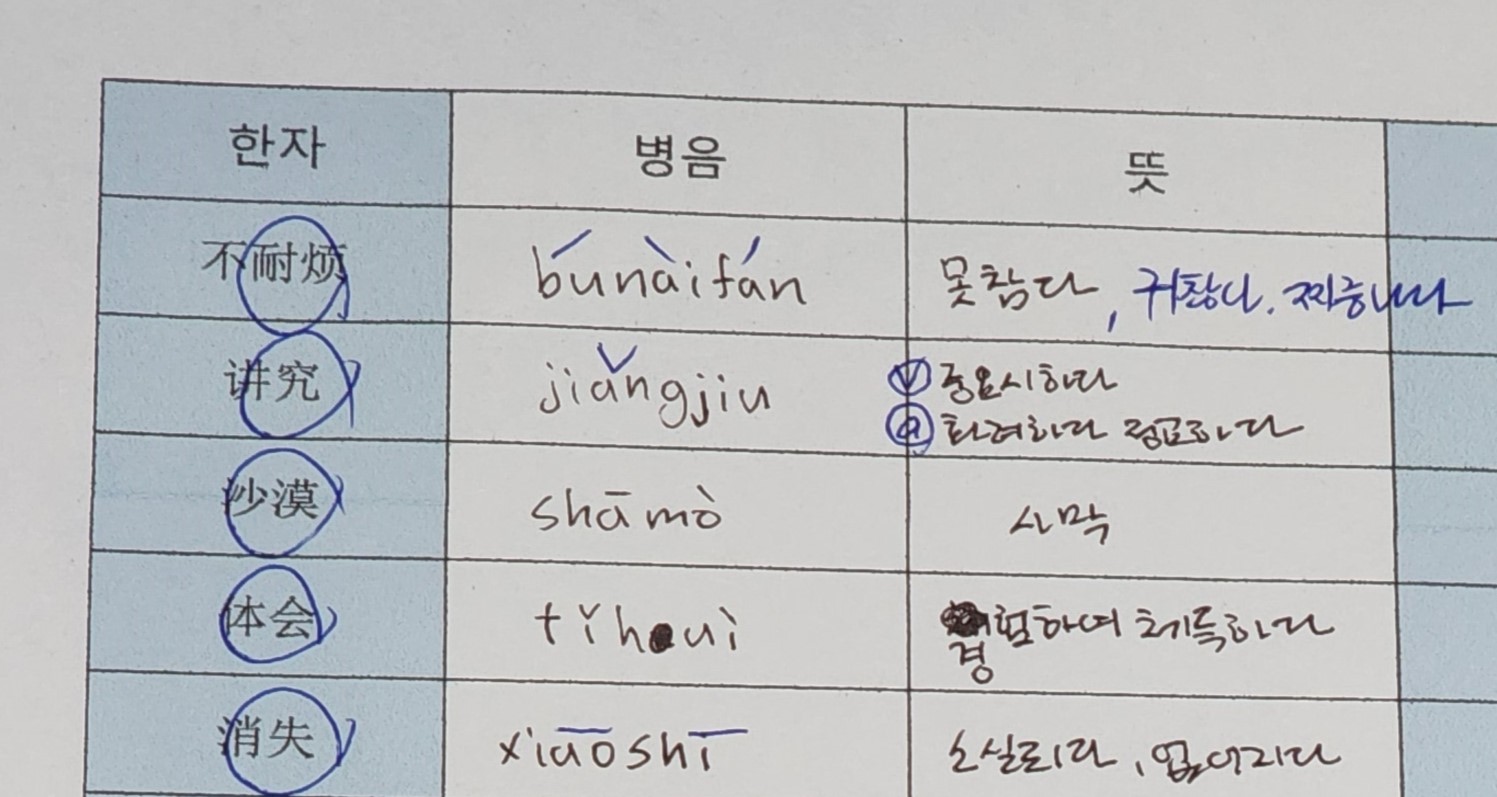 한자 병음 뜻
不耐烦 búnàifán 못참다, 귀찮다. 짜증나다
讲究 jiǎngjiu ⓥ 중요시하다
ⓐ 화려하다 정교하다
沙漠 shāmò 사막
体会 tǐhuì 경험하여 체득하다
消失 xiāoshī 소실되다, 없어지다